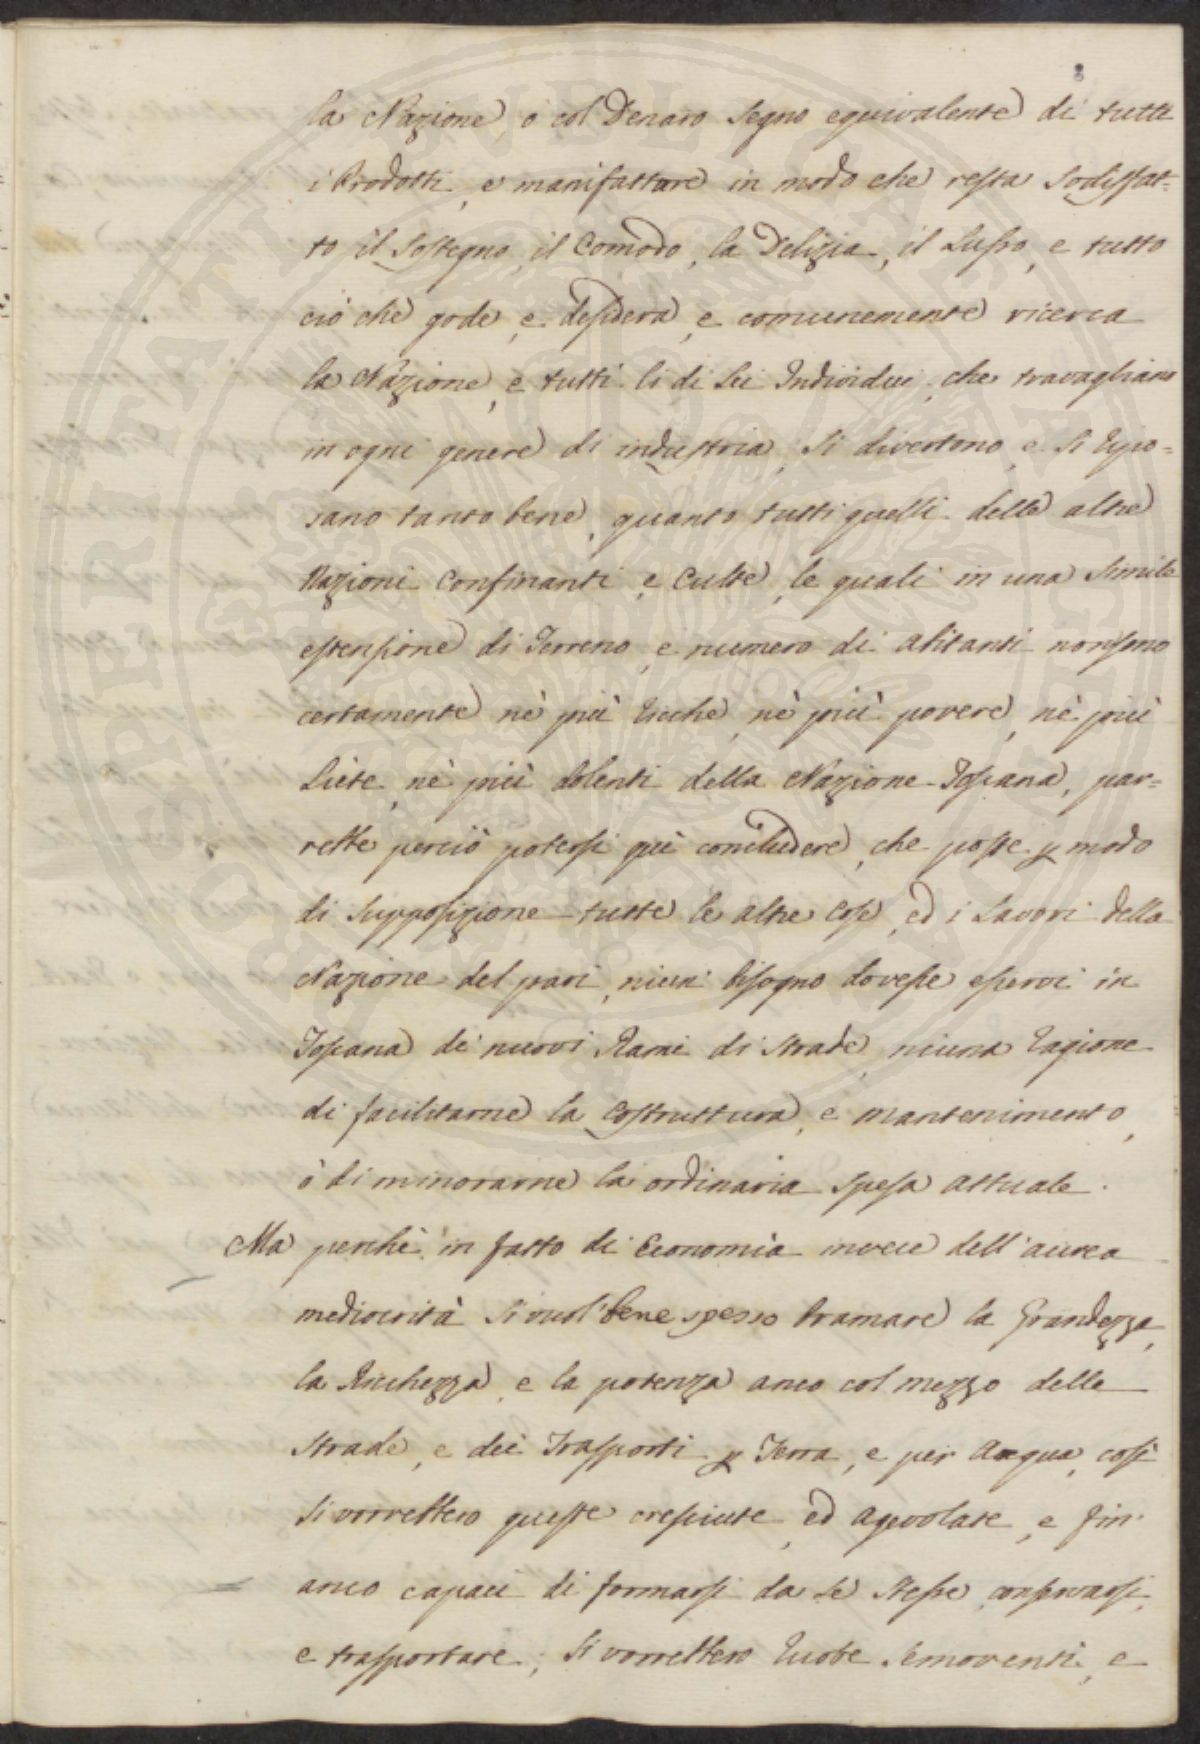 8
la Nazione, o col Denaro segno equivalente di tutti
i Prodotti, e manifatture in modo che resta sodisfat=
to il sostegno, il Comodo, la Delizia, il Lusso, e tutto
ciò che gode, e desidera, e comunemente ricerca
la Nazione, e tutti li di Lei Individui, che travagliano
in ogni genere di industria, si divertono, e si ripo=
sano tanto bene, quanto tutti quelli delle altre
Nazioni Confinanti, e Culte, le quali in una simile
estensione di Terreno, e numero di abitanti non sono
certamente nè più ricche, nè più povere, nè più
Liete, nè più dolenti della Nazione Toscana, par=
rebbe perciò potersi quì concludere, che poste p modo
di supposizione tutte le altre Cose, ed i Lavori della
Nazione del pari, niun bisogno dovesse esservi in
Toscana di nuovi Rami di strade, niuna ragione
di facilitarne la Costruttura, e mantenimento,
ò di minorarne la ordinaria spesa attuale.
Ma perchè in fatto di Economia invece dell'aurea
mediocrità si vuol' bene spesso bramare la Grandezza,
la Richezza, e la potenza anco col mezzo delle
strade, e dei Trasporti p Terra, e per Acqua, così
si vorrebbero queste cresciute, ed agevolate, e fin'
anco capaci di formarsi da se stesse, conservarsi,
e trasportare; si vorrebbero ruote semoventi, e
PROSPERITATI PVBLICAE AVGENDAE